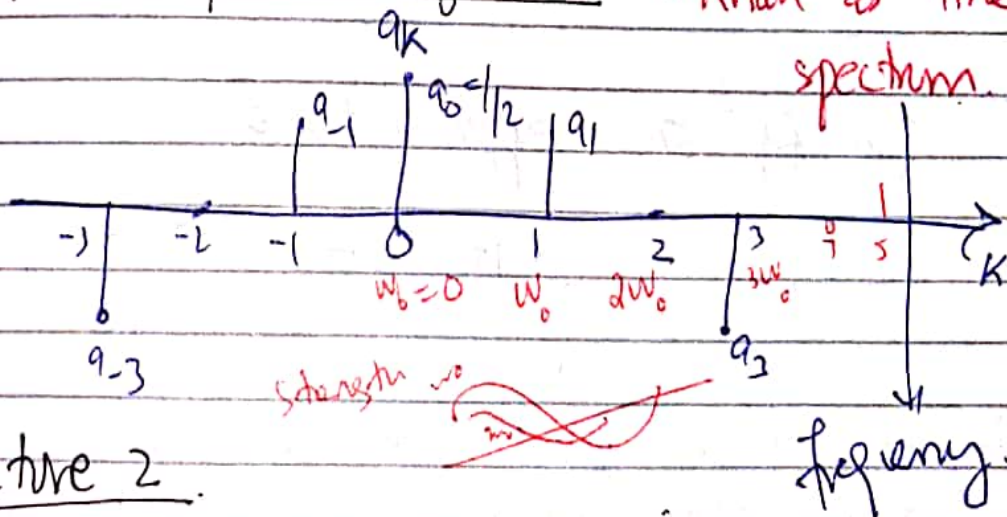 spectrum.
aK
a-1 a0 = 1/2 a1
-3 -2 -1 0 1 2 3 5 K
w0 = 0 w0 2w0 3w0
a-3 a3
strength w0
ture 2. frequency.